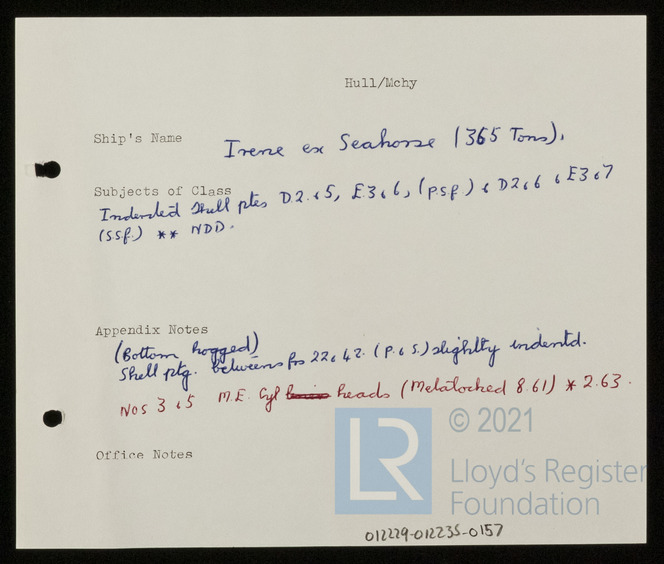 Hull/Mchy
Ship's Name
Irene ex Seahorse (365 Tons),
Subjects of Class
Indented Shell ptes D.2.&5, E.3&6, (p.s.f.) & D2&6 & E3&7
(s.s.f.) ** NDD.
Appendix Notes
(Bottom hogged)
Shell ptg. betweens frs 22&42. (P.&S.) slightly indentd.
Nos 3 &5 M.E. Cyl heads (Metalocked 8.61) * 2.63.
Office Notes
LR
© 2021
Lloyd's Register
Foundation
012229-012235-0157